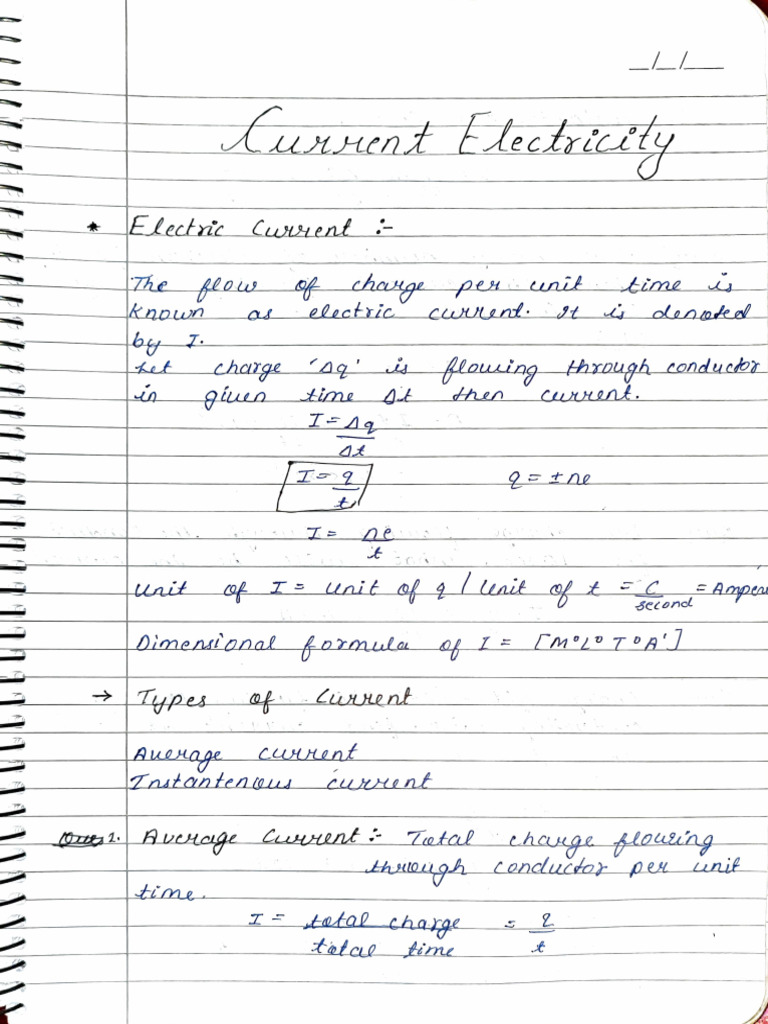 _/_/__
Current Electricity
* Electric Current :-
The flow of charge per unit time is
known as electric current. It is denoted
by I.
Let charge 'Δq' is flowing through conductor
in given time Δt then current.
I = Δq/Δt
I = q/t q = ±ne
I = ne/t
Unit of I = unit of q / Unit of t = C/second = Ampere
Dimensional formula of I = [M⁰L⁰T⁰A¹]
→ Types of Current
Average current
Instantenous current
1. Average Current :- Total charge flowing
through conductor per unit
time.
I = total charge/total time = q/t